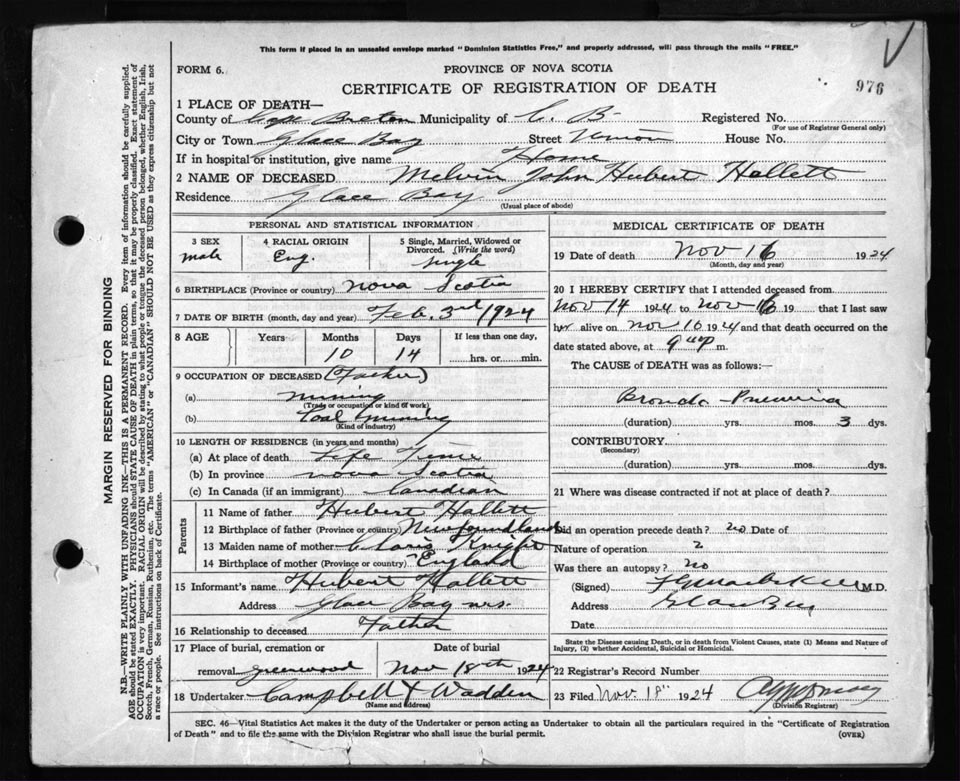 This form if placed in an unsealed envelope marked "Dominion Statistics Free," and properly addressed, will pass through the mails "FREE."
FORM 6.
PROVINCE OF NOVA SCOTIA
976
CERTIFICATE OF REGISTRATION OF DEATH
1 PLACE OF DEATH—
County of Cape Breton Municipality of C. B. Registered No.
(For use of Registrar General only)
City or Town Glace Bay Street Union House No.
If in hospital or institution, give name Home
2 NAME OF DECEASED Melvin John Hubert Hallett
Residence Glace Bay
(Usual place of abode)
PERSONAL AND STATISTICAL INFORMATION
3 SEX male
4 RACIAL ORIGIN Eng.
5 Single, Married, Widowed or Divorced. (Write the word) single
6 BIRTHPLACE (Province or country) Nova Scotia
7 DATE OF BIRTH (month, day and year) Feb. 3rd 1924
8 AGE Years Months Days If less than one day,
10 14 hrs. or min.
9 OCCUPATION OF DECEASED (Father)
(a) Mining
(Trade or occupation or kind of work)
(b) Coal Mining
(Kind of industry)
10 LENGTH OF RESIDENCE (in years and months)
(a) At place of death Life Time
(b) In province Nova Scotia
(c) In Canada (if an immigrant) Canadian
Parents
11 Name of father Hubert Hallett
12 Birthplace of father (Province or country) Newfoundland
13 Maiden name of mother Knight
14 Birthplace of mother (Province or country) England
15 Informant's name Hubert Hallett
Address Glace Bay N.S.
16 Relationship to deceased Father
17 Place of burial, cremation or Date of burial
removal Greenwood Nov 18th 1924
18 Undertaker Campbell & Wadden
(Name and address)
MEDICAL CERTIFICATE OF DEATH
19 Date of death Nov 16 1924
(Month, day and year)
20 I HEREBY CERTIFY that I attended deceased from
Nov 14 1924 to Nov 16 19 that I last saw
him alive on Nov 16 1924 and that death occurred on the
date stated above, at 9 m.
The CAUSE of DEATH was as follows:
Broncho-Pneumonia
(duration) yrs. mos. 3 dys.
CONTRIBUTORY
(Secondary)
(duration) yrs. mos. dys.
21 Where was disease contracted if not at place of death?
Did an operation precede death? no Date of
Nature of operation 2
Was there an autopsy? no
(Signed) M.D.
Address Glace Bay
Date
State the Disease causing Death, or in death from Violent Causes, state (1) Means and Nature of
Injury, (2) whether Accidental, Suicidal or Homicidal.
22 Registrar's Record Number
23 Filed Nov. 18" 1924
(Division Registrar)
SEC. 46—Vital Statistics Act makes it the duty of the Undertaker or person acting as Undertaker to obtain all the particulars required in the "Certificate of Registration
of Death" and to file the same with the Division Registrar who shall issue the burial permit.
(OVER)
MARGIN RESERVED FOR BINDING
N.B.—WRITE PLAINLY WITH UNFADING INK—THIS IS A PERMANENT RECORD. Every item of information should be carefully supplied.
AGE should be stated EXACTLY. PHYSICIANS should STATE CAUSE OF DEATH in plain terms, so that it may be properly classified. Exact statement of
OCCUPATION is very important. RACIAL ORIGIN will be described by stating to what people or tongue the deceased person belonged, whether English, Irish,
Scotch, French, German, Russian, Ruthenian, etc. The terms "AMERICAN" or "CANADIAN" SHOULD NOT BE USED as they express citizenship but not
a race or people. See instructions on back of Certificate.